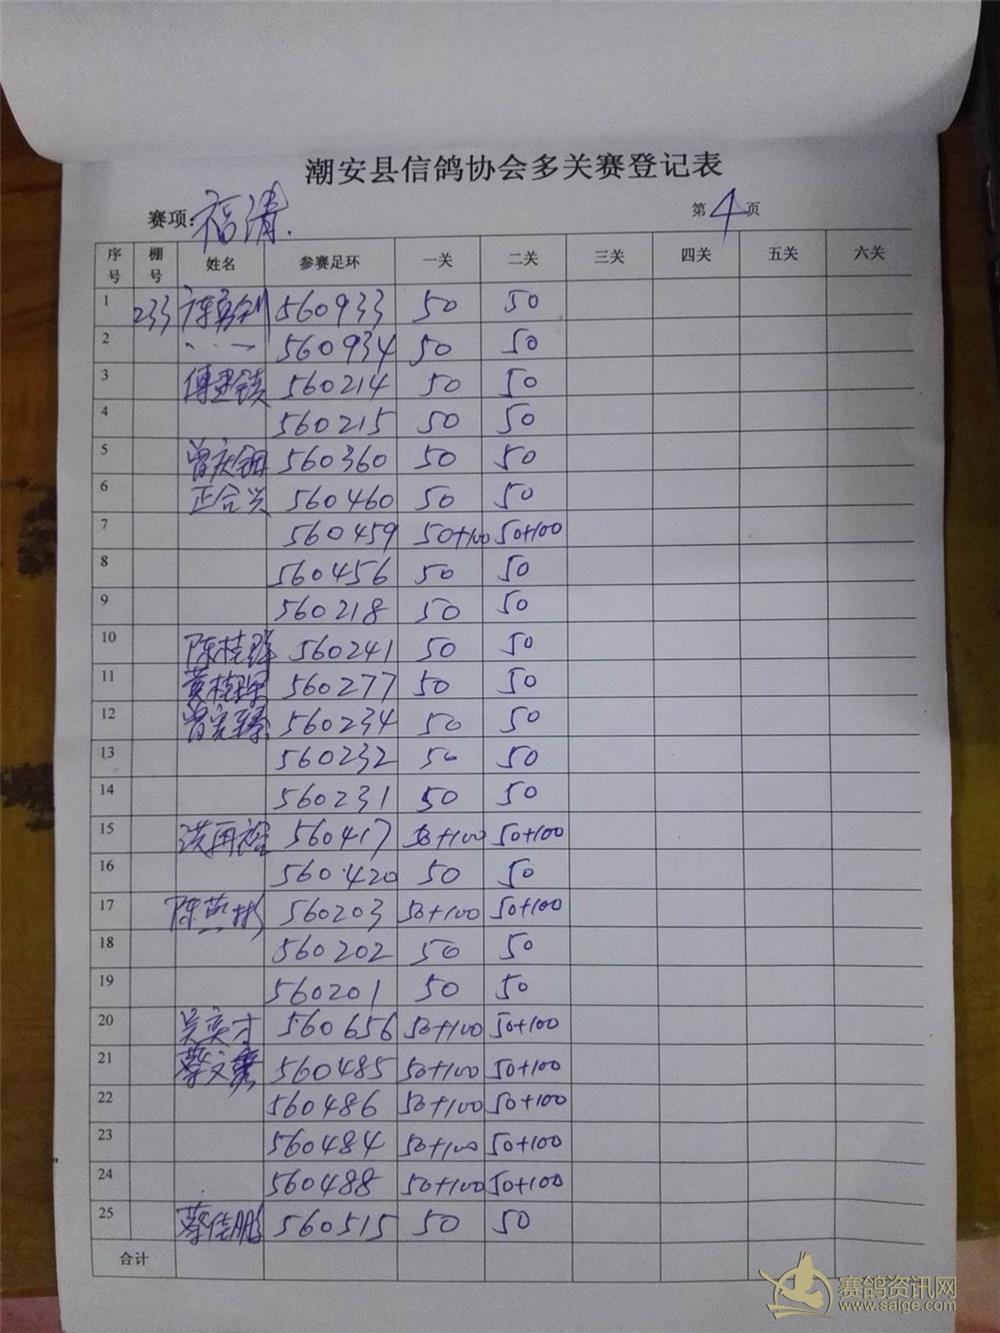 潮安县信鸽协会多关赛登记表
赛项：福清. 第4页
序号 棚号 姓名 参赛足环 一关 二关 三关 四关 五关 六关
1 233 560933 50 50
2 560934 50 50
3 傅 560214 50 50
4 560215 50 50
5 曾庆 560360 50 50
6 正合兴 560460 50 50
7 560459 50+100 50+100
8 560456 50 50
9 560218 50 50
10 陈桂 560241 50 50
11 黄 560277 50 50
12 曾 560234 50 50
13 560232 50 50
14 560231 50 50
15 洪再 560417 50+100 50+100
16 560420 50 50
17 陈 彬 560203 50+100 50+100
18 560202 50 50
19 560201 50 50
20 吴奕才 560656 50+100 50+100
21 蔡文 560485 50+100 50+100
22 560486 50+100 50+100
23 560484 50+100 50+100
24 560488 50+100 50+100
25 蔡佳鹏 560515 50 50
合计
赛鸽资讯网
www.saige.com